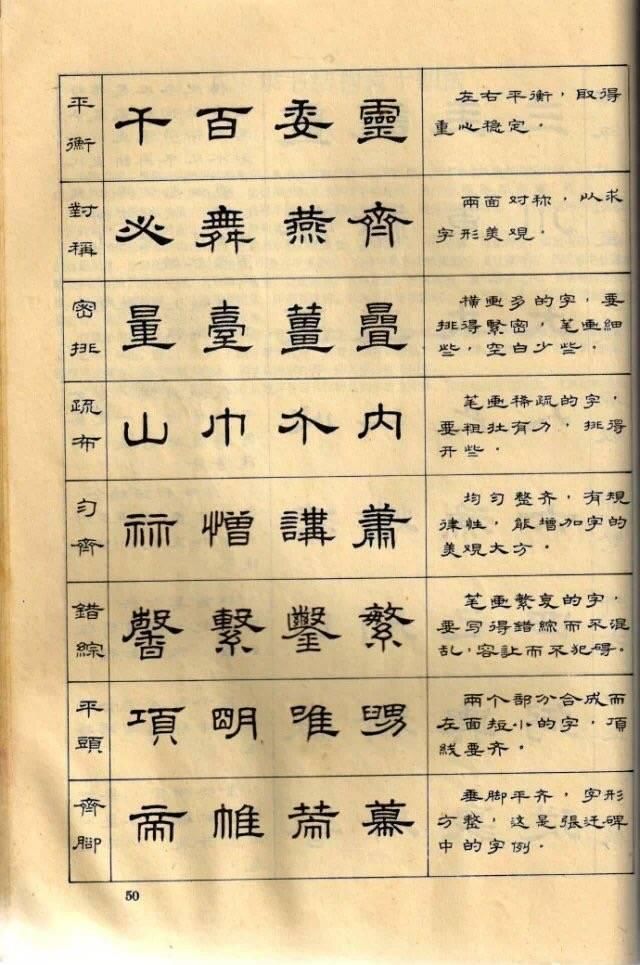 平衡
千 百 委 靈
左右平衡，取得
重心穩定。
對稱
必 舞 燕 齊
兩面对称，以求
字形美观。
密排
量 臺 薑 疊
橫画多的字，要
排得緊密，笔画細
些，空白少些。
疏布
山 巾 介 内
笔画稀疏的字，
要粗壮有力，排得
开些。
匀齊
憎 講 蕭
均匀整齐，有規
律性，能增加字的
美观大方。
錯綜
馨 繫 鑿 繁
笔画繁复的字，
要写得錯綜而不混
乱，容让而不犯碍。
平頭
項 明 唯
兩个部分合成而
左面短小的字，頂
线要齐。
齊腳
帝 帷 幕
垂脚平齐，字形
方整，这是張迁碑
中的字例。
50